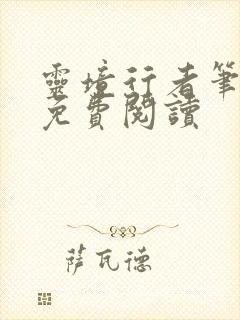 靈境行者筆
免費閱讀
薩瓦德